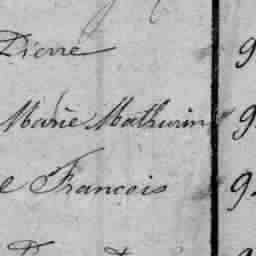 Pierre 9
Marie Mathurin 9
e François 9